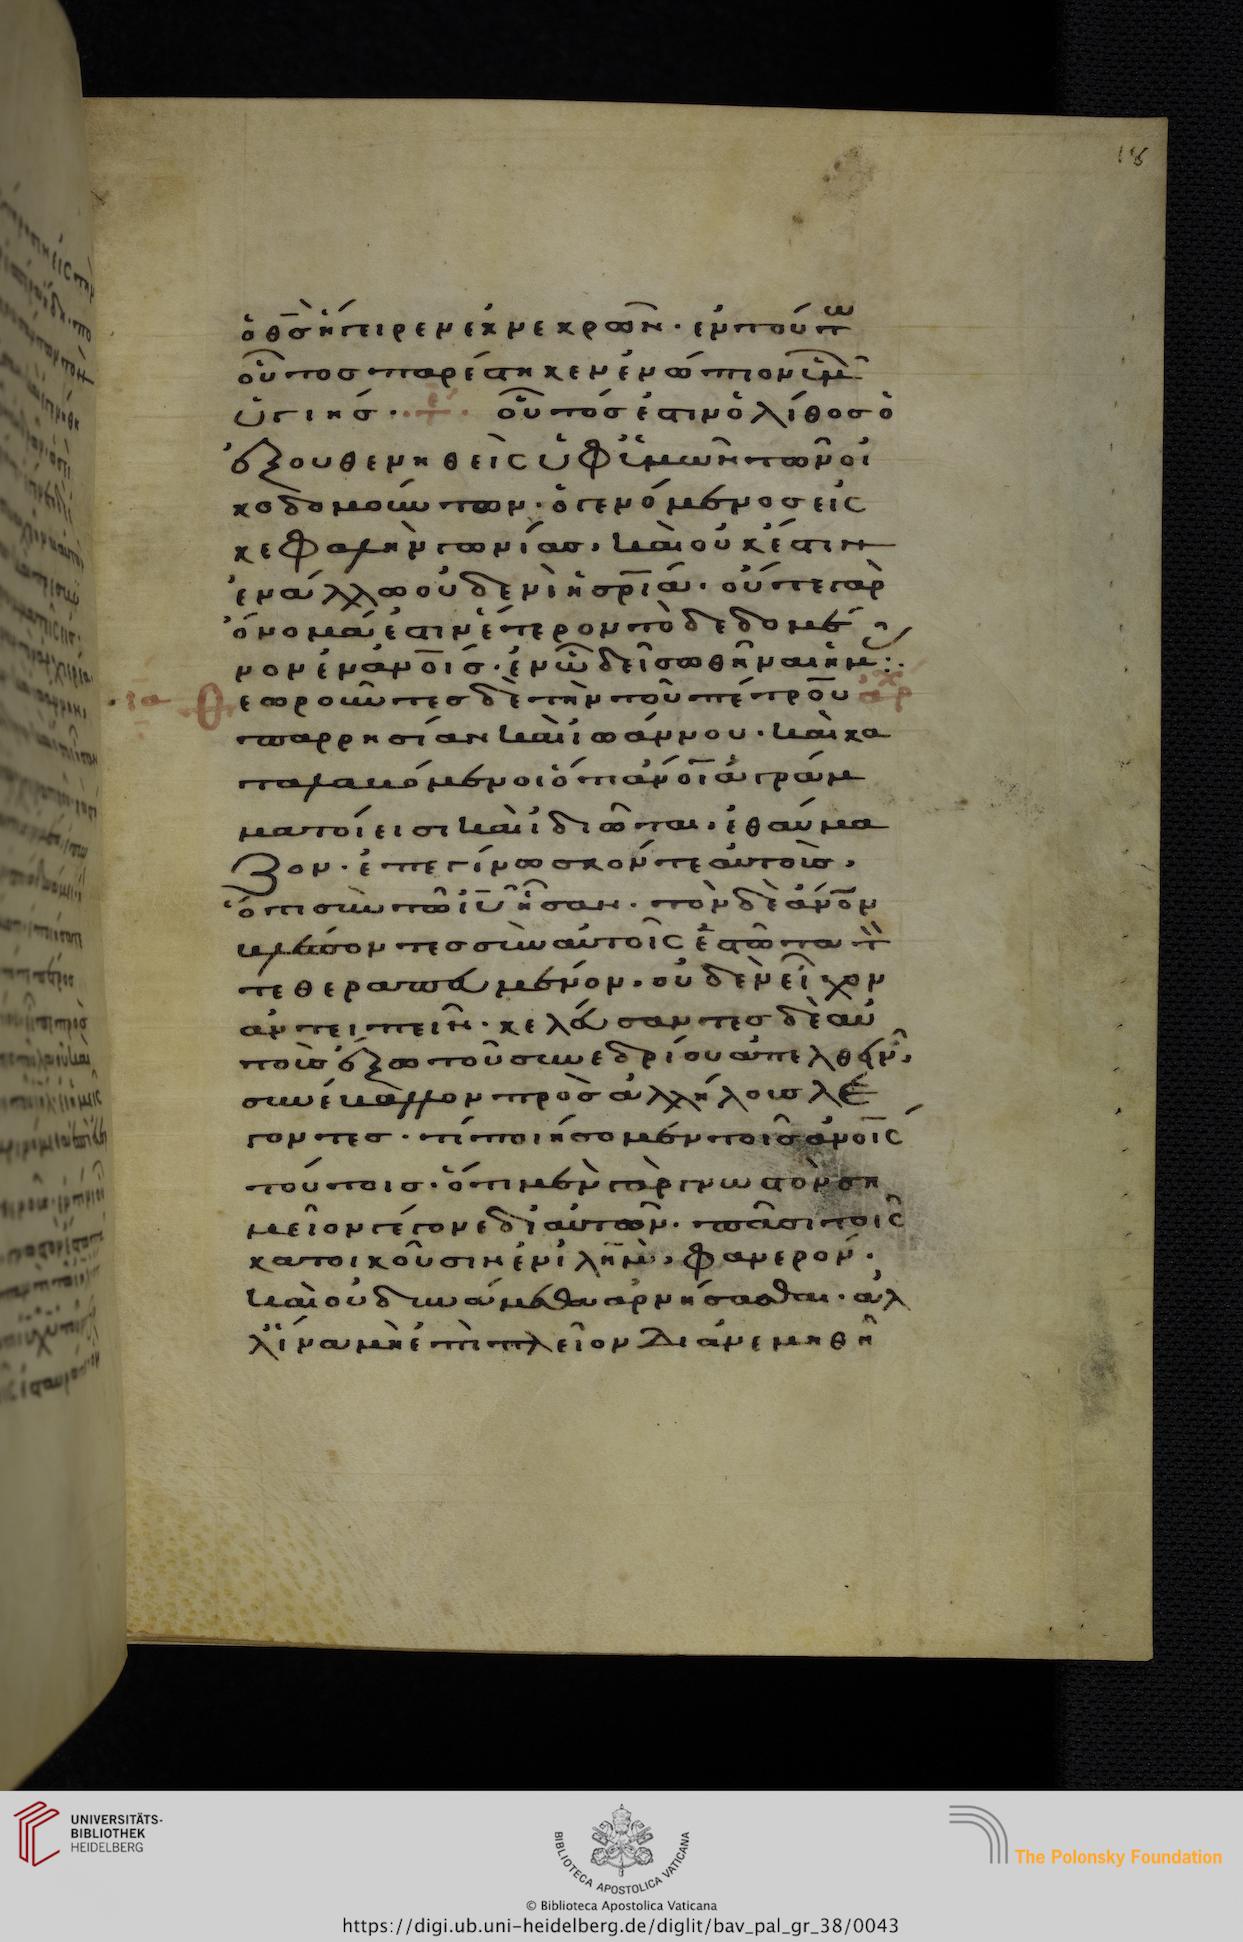 ὁ θ̅ς̅ ἤγειρεν ἐκ νεκρῶν· ἐν τούτω
οὗτος παρέστηκεν ἐνώπιον ὑμ
ὑγιής· τε οὗτός ἐστιν ὁ λίθος ὁ
ἐξουθενηθεὶς ὑφ' ὑμῶν τῶν οἰ
κοδομούντων· ὁ γενόμενος εἰς
κεφαλὴν γωνίας, καὶ οὐκ ἔστιν
ἐν ἄλλω οὐδενὶ ἡ σ̅ρ̅ί̅α· οὔτε γὰρ
ὄνομά ἐστιν ἕτερον τὸ δεδομέ
νον ἐν ἀ̅ν̅ο̅ι̅ς· ἐν ὧ δεῖ σωθῆναι ἡμ:
ια Θεωροῦντες δὲ τὴν τοῦ πέτρου αρχ
παρρησίαν καὶ ἰωάννου· καὶ κα
ταλαβόμενοι ὅτι ἀ̅ν̅ο̅ι ἀγράμ
ματοί εἰσι καὶ ἰδιῶται, ἐθαύμα
ζον· ἐπεγίνωσκόν τε αὐτοὺς,
ὅτι σὺν τῶ ἰ̅υ̅ ἦσαν· τὸν δὲ ἀ̅ν̅ο̅ν
βλέποντες σὺν αὐτοῖς ἑστῶτα τὸ
τεθεραπευμένον· οὐδὲν εἶχον
ἀντειπεῖν· κελεύσαντες δὲ αὐ
τοὺς ἔξω τοῦ συνεδρίου ἀπελθεῖν,
συνέβαλλον πρὸς ἀλλήλους λέ
γοντες· τί ποιήσομεν τοῖς ἀ̅ν̅ο̅ι̅ς
τούτοις· ὅτι μὲν γὰρ γνωστὸν ση
μεῖον γέγονε δι' αὐτῶν· πᾶσι τοῖς
κατοικοῦσιν ἐν ἰ̅λ̅η̅μ̅, φανερόν·
καὶ οὐ δυνάμεθα ἀρνήσασθαι· ἀλ
λ' ἵνα μὴ ἐπὶ πλεῖον διανεμηθῆ
UNIVERSITÄTS-
BIBLIOTHEK
HEIDELBERG
BIBLIOTECA APOSTOLICA VATICANA
The Polonsky Foundation
© Biblioteca Apostolica Vaticana
https://digi.ub.uni-heidelberg.de/diglit/bav_pal_gr_38/0043